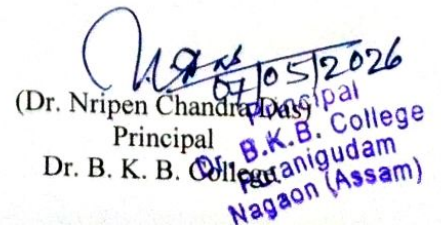 07/05/2026
(Dr. Nripen Chandra Das)
Principal
Dr. B. K. B. College
Principal
Dr. B.K.B. College
Puranigudam
Nagaon (Assam)